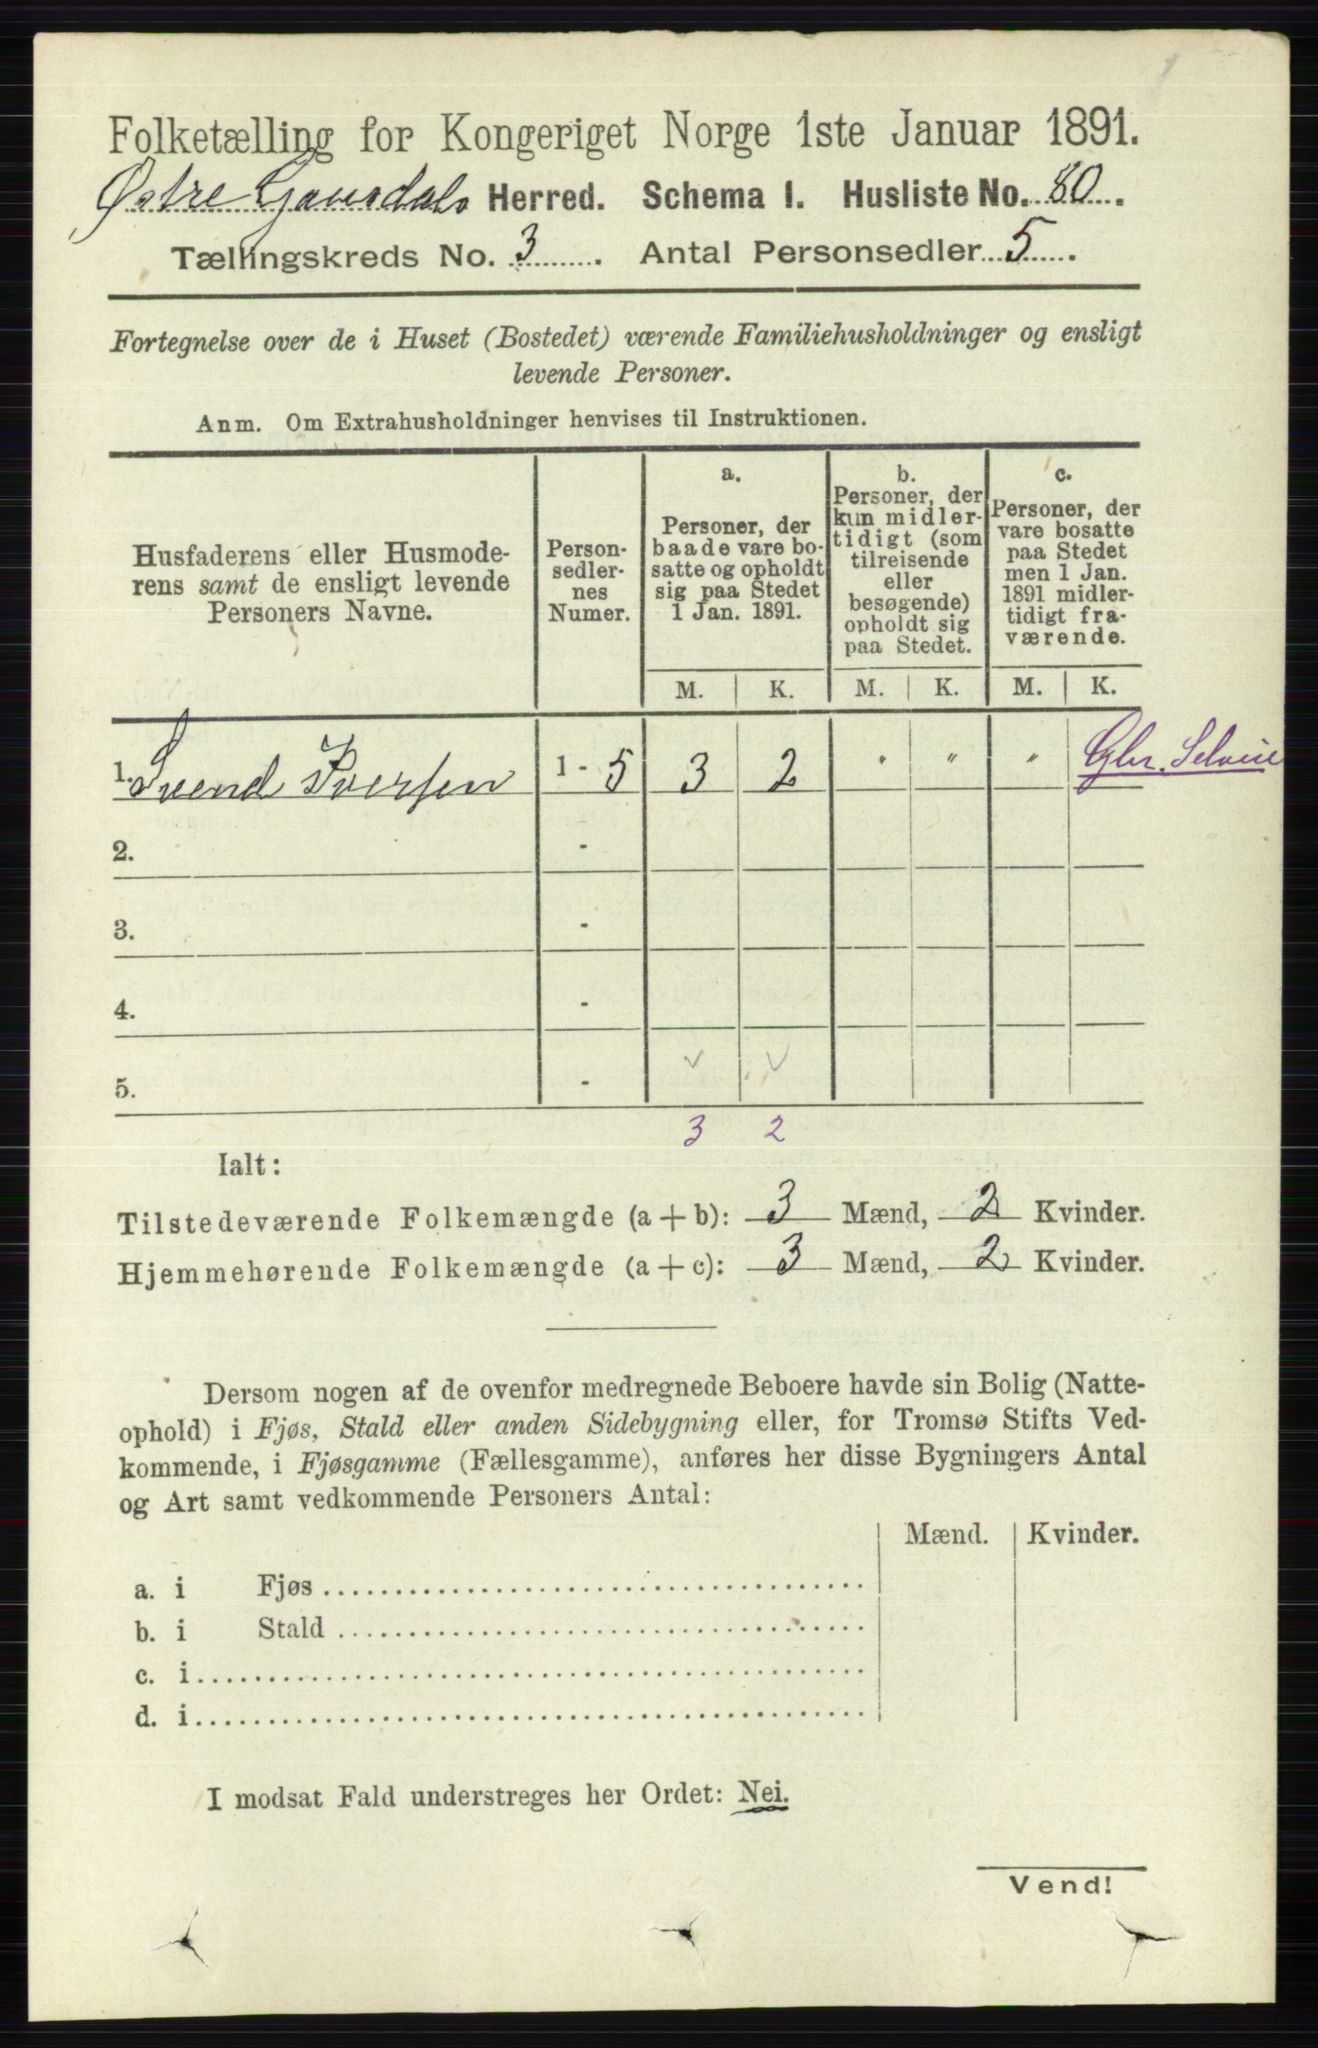 Folketælling for Kongeriget Norge 1ste Januar 1891.
Østre Gausdals Herred. Schema I. Husliste No. 80.
Tællingskreds No. 3. Antal Personsedler 5.
Fortegnelse over de i Huset (Bostedet) værende Familiehusholdninger og ensligt
levende Personer.
Anm. Om Extrahusholdninger henvises til Instruktionen.
Husfaderens eller Husmode-
rens samt de ensligt levende
Personers Navne.
Person-
sedler-
nes
Numer.
a.
Personer, der
baade vare bo-
satte og opholdt
sig paa Stedet
1 Jan. 1891.
b.
Personer, der
kun midler-
tidigt (som
tilreisende
eller
besøgende)
opholdt sig
paa Stedet.
c.
Personer, der
vare bosatte
paa Stedet
men 1 Jan.
1891 midler-
tidigt fra-
værende.
M. K. M. K. M. K.
1. Svend Iversen 1 - 5 3 2 " " "
2. -
3. -
4. -
5. -
3 2
Ialt:
Tilstedeværende Folkemængde (a + b): 3 Mænd, 2 Kvinder.
Hjemmehørende Folkemængde (a + c): 3 Mænd, 2 Kvinder.
Dersom nogen af de ovenfor medregnede Beboere havde sin Bolig (Natte-
ophold) i Fjøs, Stald eller anden Sidebygning eller, for Tromsø Stifts Ved-
kommende, i Fjøsgamme (Fællesgamme), anføres her disse Bygningers Antal
og Art samt vedkommende Personers Antal:
Mænd. Kvinder.
a. i Fjøs
b. i Stald
c. i
d. i
I modsat Fald understreges her Ordet: Nei.
Vend!